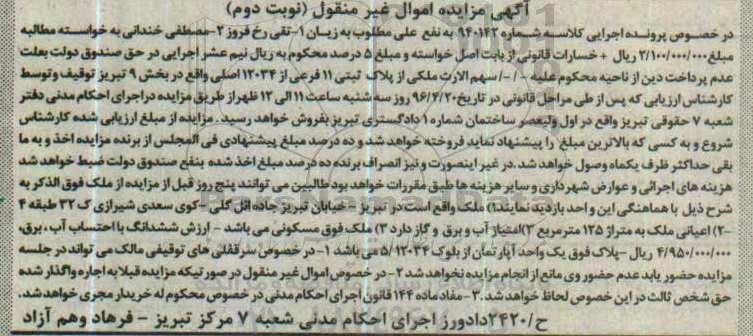 آگهی مزایده اموال غیر منقول (نوبت دوم)
در خصوص پرونده اجرایی کلاسه شماره ۹۴۰۱۴۲ به نفع علی مطلوب به زیان ۱-تقی رخ فروز ۲-مصطفی خندانی به خواسته مطالبه
مبلغ ۲/۱۰۰/۰۰۰/۰۰۰ ریال + خسارات قانونی از بابت اصل خواسته و مبلغ ۵ درصد محکوم به ریال نیم عشر اجرایی در حق صندوق دولت بعلت
عدم پرداخت دین از ناحیه محکوم علیه -/-/ سهم الارث ملکی از پلاک ثبتی ۱۱ فرعی از ۱۲۰۳۴ اصلی واقع در بخش ۹ تبریز توقیف وتوسط
کارشناس ارزیابی که پس از طی مراحل قانونی در تاریخ ۹۶/۴/۲۰ روز سه شنبه ساعت ۱۱ الی ۱۲ ظهر از طریق مزایده در اجرای احکام مدنی دفتر
شعبه ۷ حقوقی تبریز واقع در اول ولیعصر ساختمان شماره ۱ دادگستری تبریز بفروش خواهد رسید. مزایده از مبلغ ارزیابی شده کارشناس
شروع و به کسی که بالاترین مبلغ را پیشنهاد نماید فروخته خواهد شد و ده درصد مبلغ پیشنهادی فی المجلس از برنده مزایده اخذ و به ما
بقی حداکثر ظرف یکماه وصول خواهد شد. در غیر اینصورت و نیز انصراف برنده ده درصد مبلغ اخذ شده بنفع صندوق دولت ضبط خواهد شد
هزینه های اجرائی و عوارض شهرداری و سایر هزینه ها طبق مقررات خواهد بود طالبین می توانند پنج روز قبل از مزایده از ملک فوق الذکر به
شرح ذیل با هماهنگی این واحد بازدید نمایند۱) ملک واقع است در تبریز -خیابان تبریز جاده ائل گلی -کوی سعدی شیرازی ک ۳۲ طبقه ۴
-۲) اعیانی ملک به متراژ ۱۲۵ مترمربع ۳)امتیاز آب و برق و گاز دارد ۳) ملک فوق مسکونی می باشد - ارزش ششدانگ با احتساب آب، برق،
۴/۹۵۰/۰۰۰/۰۰۰ ریال -پلاک فوق یک واحد آپارتمان از بلوک ۵/۱۲۰۳۴ می باشد ۱-در خصوص سرقفلی های توقیفی مالک می تواند در جلسه
مزایده حضور یابد عدم حضور وی مانع از انجام مزایده نخواهد شد ۲- در خصوص اموال غیر منقول در صورتیکه مزایده قبلا به اجاره واگذار شده
حق شخص ثالث در این خصوص لحاظ خواهد شد. ۳-مفاد ماده ۱۴۴ قانون اجرای احکام مدنی در خصوص محکوم له خریدار مجری خواهد شد.
ح/۲۴۲۰ دادورز اجرای احکام مدنی شعبه ۷ مرکز تبریز - فرهاد وهم آزاد